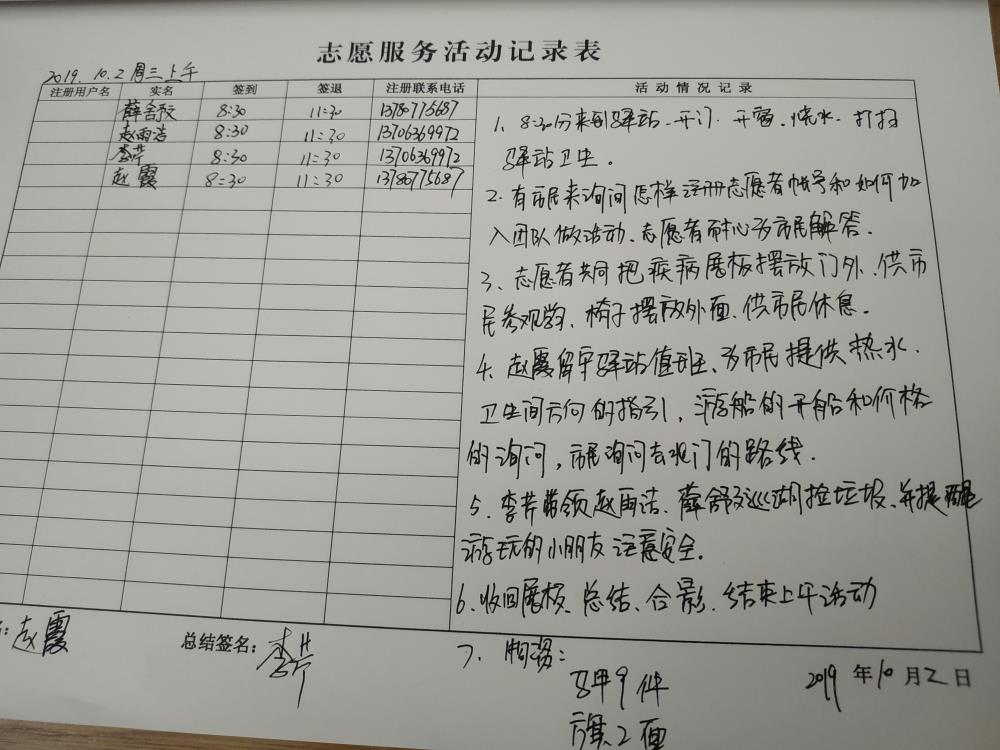 志愿服务活动记录表
2019.10.2周三上午
注册用户名 实名 签到 签退 注册联系电话 活动情况记录
薛舒文 8:30 11:30 13780775687
赵雨洁 8:30 11:30 13706369972
李芹 8:30 11:30 13706369972
赵霞 8:30 11:30 13780775687
1、8:30分来到驿站、开门、开窗、烧水、打扫
驿站卫生。
2、有市民来询问怎样注册志愿者帐号和如何加
入团队做活动、志愿者耐心为市民解答。
3、志愿者共同把疾病展板摆放门外、供市
民参观学、椅子摆放外面、供市民休息。
4、赵霞留守驿站值班、为市民提供热水、
卫生间方向的指引，游船的开船和价格
的询问，市民询问去北门的路线.
5、李芹带领赵雨洁、薛舒文巡湖捡垃圾、并提醒
游玩的小朋友注意安全。
6、收回展板、总结、合影、结束上午活动
名：赵霞 总结签名：李芹
7、
9件
旗2面
2019年10月2日